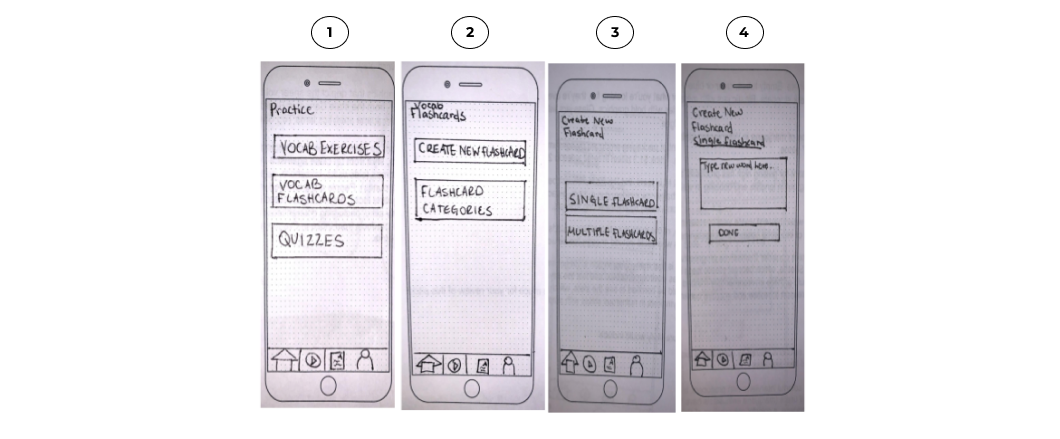 1
2
3
4
Practice
VOCAB EXERCISES
VOCAB
FLASHCARDS
QUIZZES
Vocab
Flashcards
CREATE NEW FLASHCARD
FLASHCARD
CATEGORIES
Create New
Flashcard
SINGLE FLASHCARD
MULTIPLE FLASHCARDS
Create New
Flashcard
Single Flashcard
Type new word here.
DONE